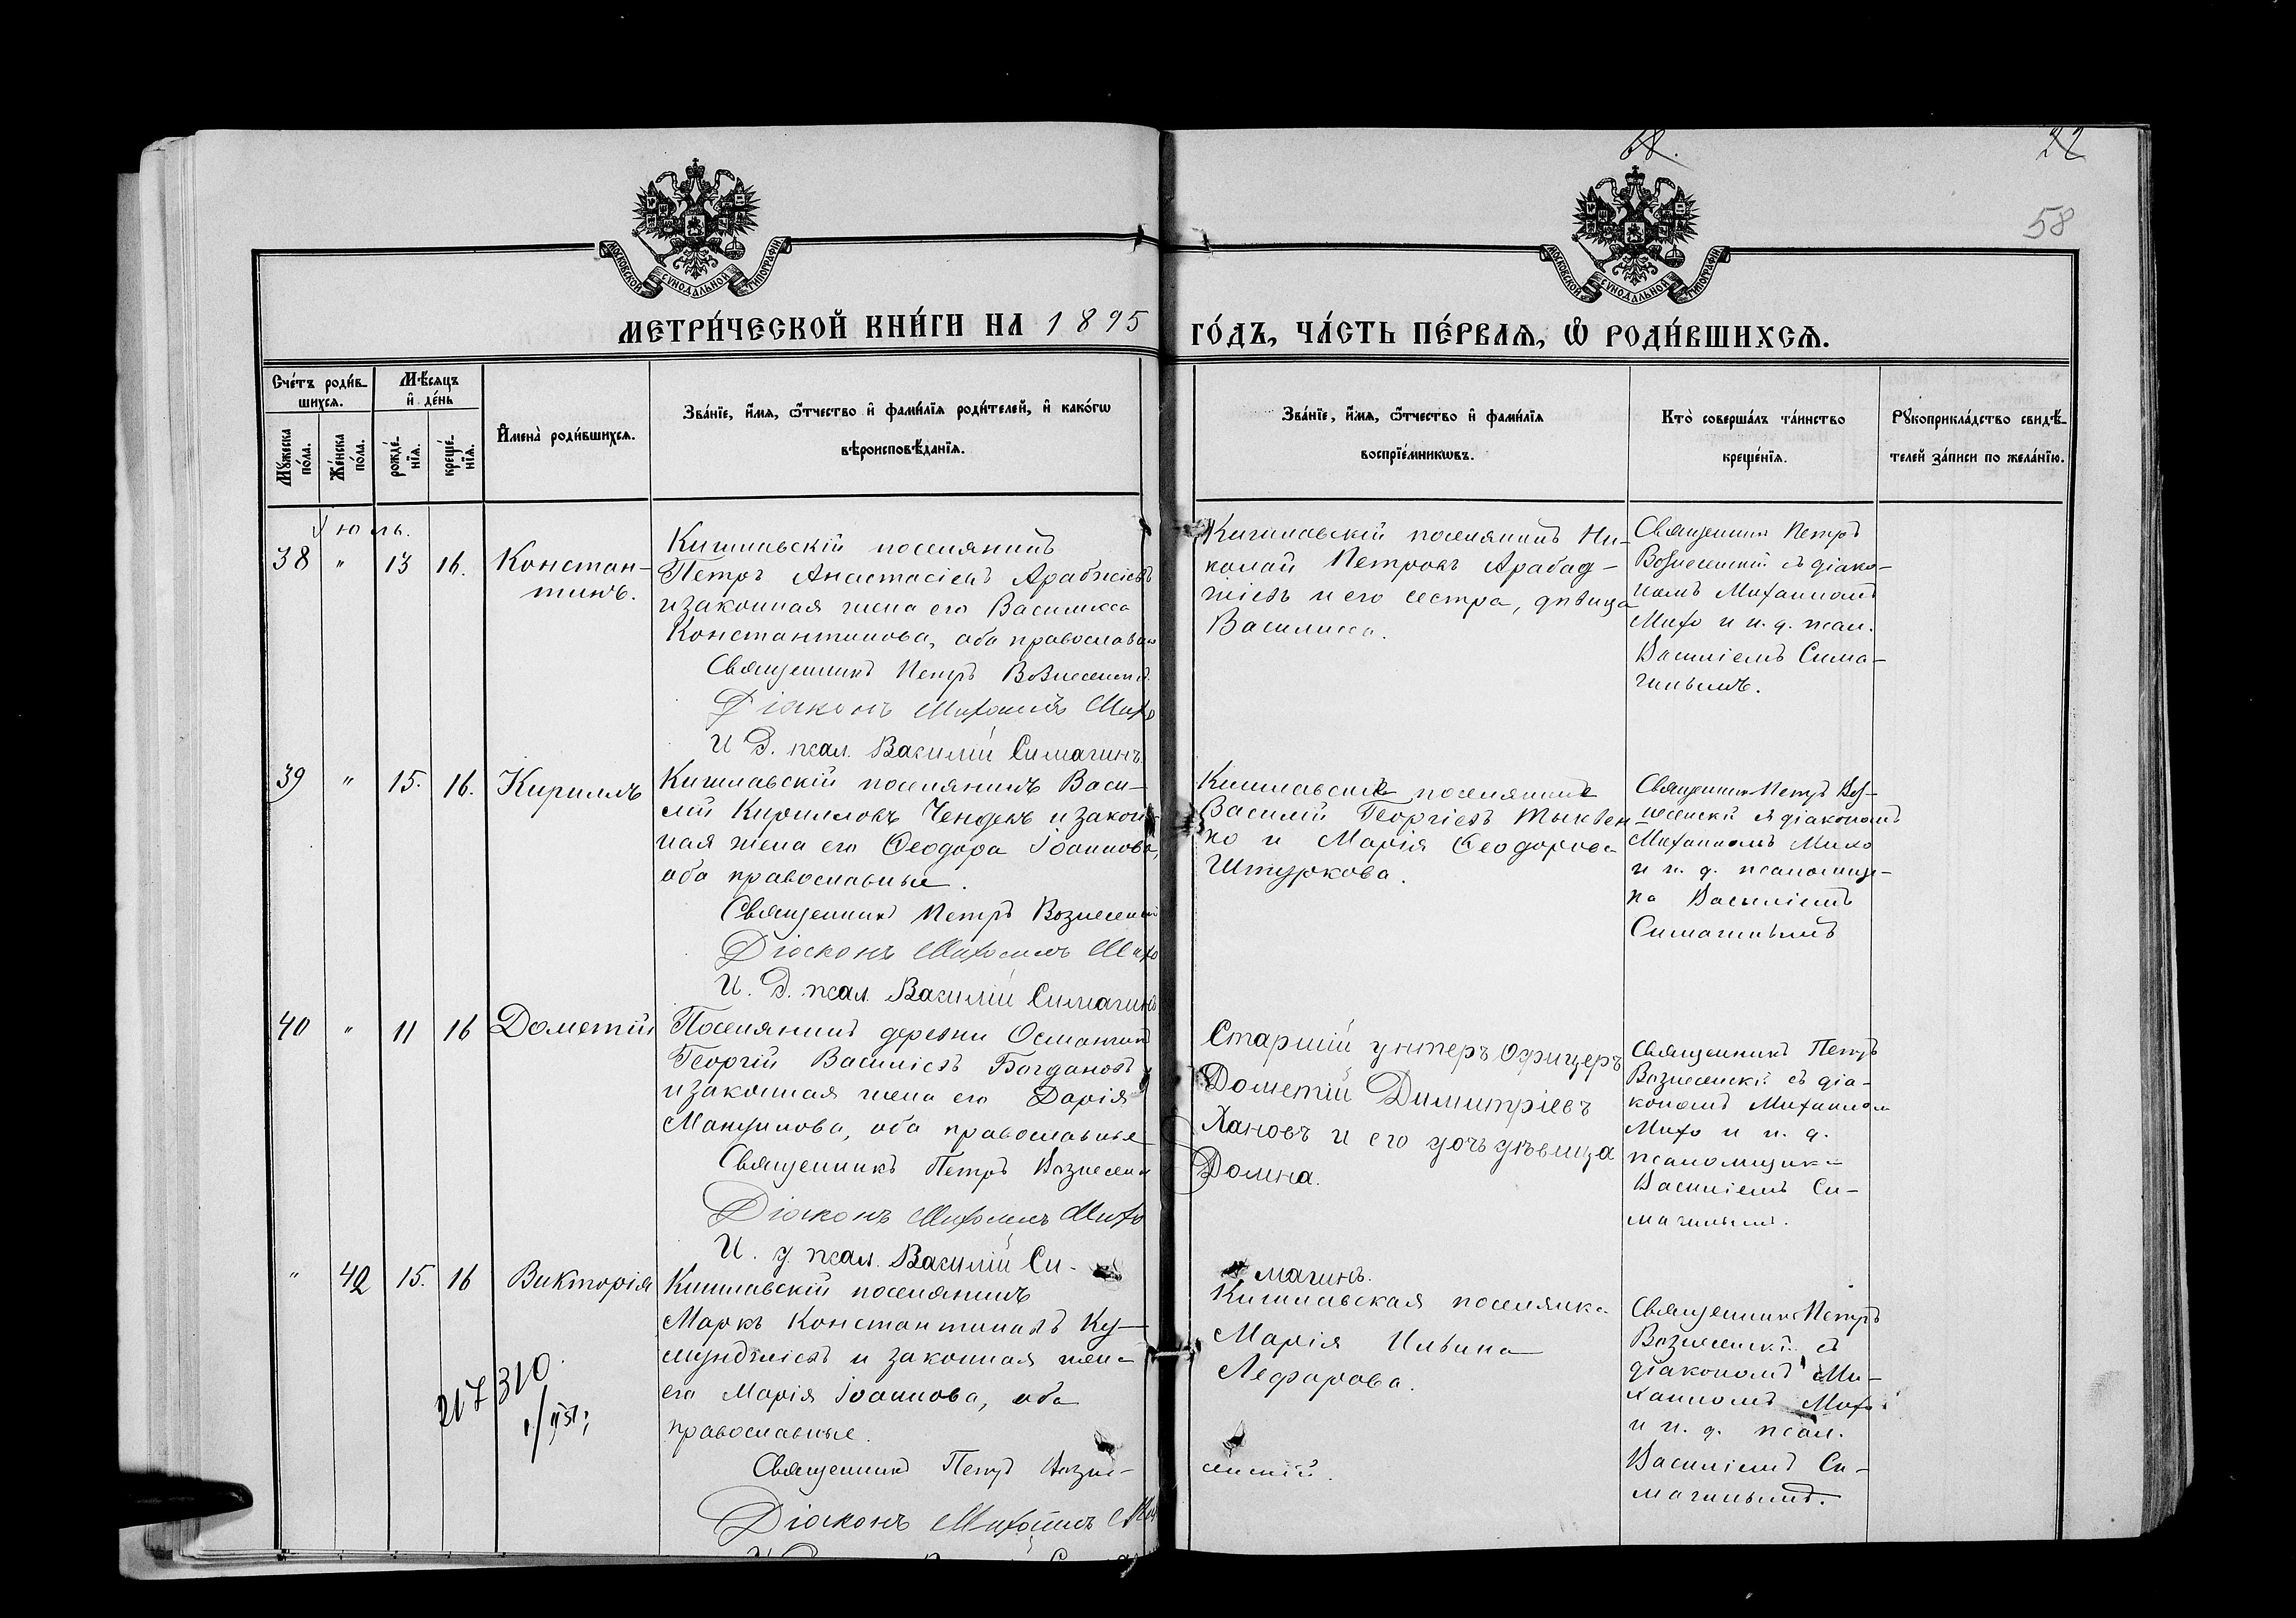 68.
22
58
МОСКОВСКОЙ СУНОДАЛЬНОЙ ТИПОГРАФІИ
МОСКОВСКОЙ СУНОДАЛЬНОЙ ТИПОГРАФІИ
МЕТРИ́ЧЕСКОЙ КНИ́ГИ НА 1895 ГО́ДЪ, ЧА́СТЬ ПЕ́РВАЯ, Ѽ РОДИ́ВШИХСЯ.
Сче́тъ роди́в-
шихся.
Мѣ́сяцъ
и҆ де́нь
Мꙋ́жеска
по́ла.
Же́нска
по́ла.
рожде́-
нїѧ.
креще́-
нїѧ.
И҆мена̀ роди́вшихся.
Зва́нїе, и҆́мя, ѻ҆́тчество и҆ фамі́лїя роди́телей, и҆ како́гѡ
вѣроисповѣ́данїя.
Зва́нїе, и҆́мя, ѻ҆́тчество и҆ фамі́лїя
воспрїе́мникѡвъ.
Кто̀ соверша́лъ та́инство
креще́нїя.
Рꙋкоприкла́дство свидѣ́-
телей за́писи по жела́нїю.
Июль.
38 " 13 16. Констан-
тинъ.
Кишлавскій поселянинъ
Петръ Анастасіевъ Арабжіевъ
и законная жена его Василисса
Константинова, оба православн
Священникъ Петръ Вознесенскій
Діаконъ Михаилъ Михо
И Д. псал. Василій Симагинъ.
Кишлавскій поселянинъ Ни-
колай Петровъ Арабад-
жіевъ и его сестра, дѣвица
Василисса.
Священник Петръ
Вознесенскій съ діако-
номъ Михаиломъ
Михо и и. д. псал.
Василіемъ Сима-
гинымъ.
39 " 15. 16. Кириллъ
Кишлавскій поселянинъ Васи-
лій Кирилловъ Чендевъ и закон-
ная жена его Ѳеодора Іоаннова,
оба православные.
Священникъ Петръ Вознесенскій
Діаконъ Михаилъ Михо
И. Д. псал. Василій Симагинъ
Кишлавскіе поселяние
Василій Георгіевъ Тыквен
ко и Марія Ѳеодорова
Штуркова.
Священник Петръ Воз-
несенскій съ діакономъ
Михаиломъ Михо
и и. д. псаломщи-
ка Василіемъ
Симагинымъ
40 " 11 16 Дометій
Поселянинъ деревни Османчик
Георгій Василіевъ Богдановъ
и законная жена его Дарія
Манчилова, оба православные
Священникъ Петръ Вознесенск
Діаконъ Михаилъ Михо
И. д. псал. Василій Си-
Старшій унтеръ офицеръ
Дометій Димитріевъ
Хановъ и его дочь дѣвица
Домна.
магинъ.
Священникъ Петръ
Вознесенскій съ діа-
кономъ Михаилом
Михо и и. д.
псаломщика
Василіемъ Си-
магинымъ.
" 42 15. 16 Викторія
Кишлавскій поселянинъ
Маркъ Константиновъ Ку-
мунджіевъ и законная жена
его Марія Іоаннова, оба
православные.
Священникъ Петръ Возне-
сенскій.
Діаконъ Михаилъ Мих
Кишлавская поселянка
Марія Ильина
Лефарова.
Священник Петръ
Вознесенскій съ
діакономъ Ми-
хаиломъ Михо
и и. д. псал.
Василіемъ Си-
магинымъ.
217 310.